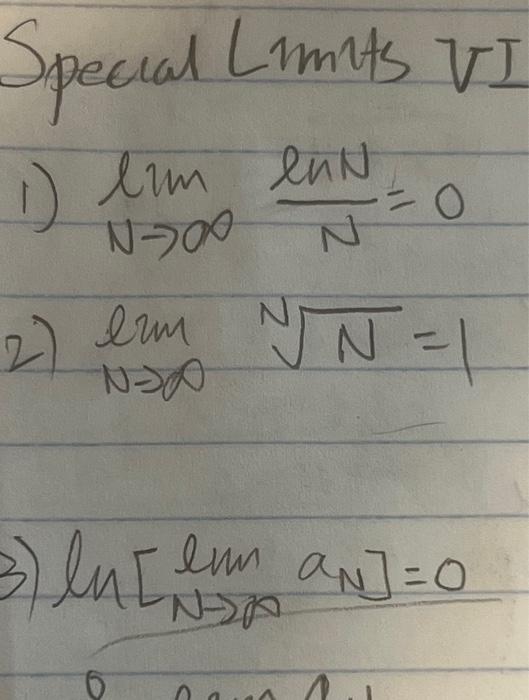 Special Limits VI
1) lim N→∞ lnN/N = 0
2) lim N→∞ ᴺ√N = 1
3) ln[lim N→∞ aN] = 0